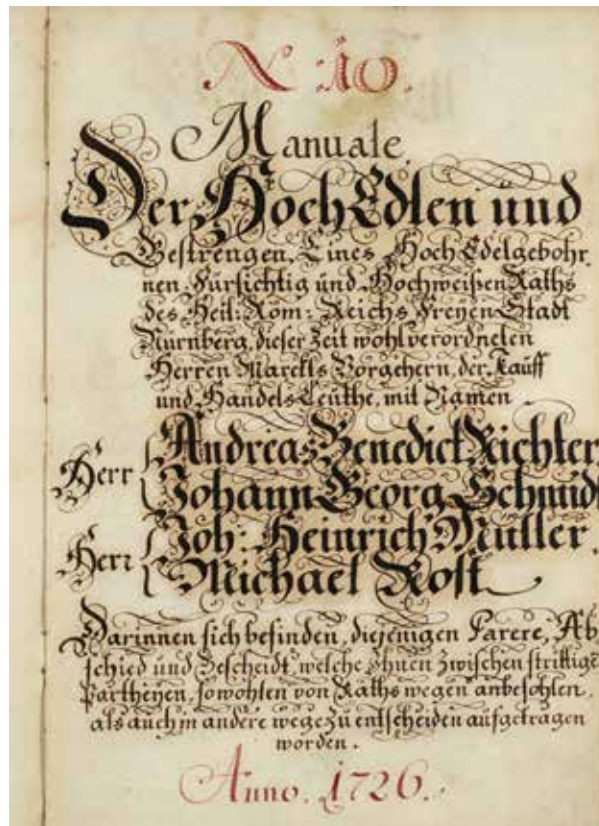 N: 10.
Manuale,
Der HochEdlen und
Gestrengen, Eines HochEdelgebohr,
nen, Fürsichtig und Hochweißen Raths
des Heil: Röm: Reichs Freÿen Stadt
Nürnberg, dieser Zeit wohlverordneten
Herren Marckts Vorgehern, der Kauff
und Handels Leuthe, mit Namen.
Herr Andreas Benedict Richter
Johann Georg Schmidt
Herr Joh: Heinrich Müller.
Michael Rost
Darinnen sich befinden, diejenigen Parere, Ab
schied und Bescheidt, welche Ihnen zwischen strittige
Partheÿen, sowohlen von Raths wegen anbefohlen,
als auch in andere wege zu entscheiden aufgetragen
worden.
Anno. 1726.